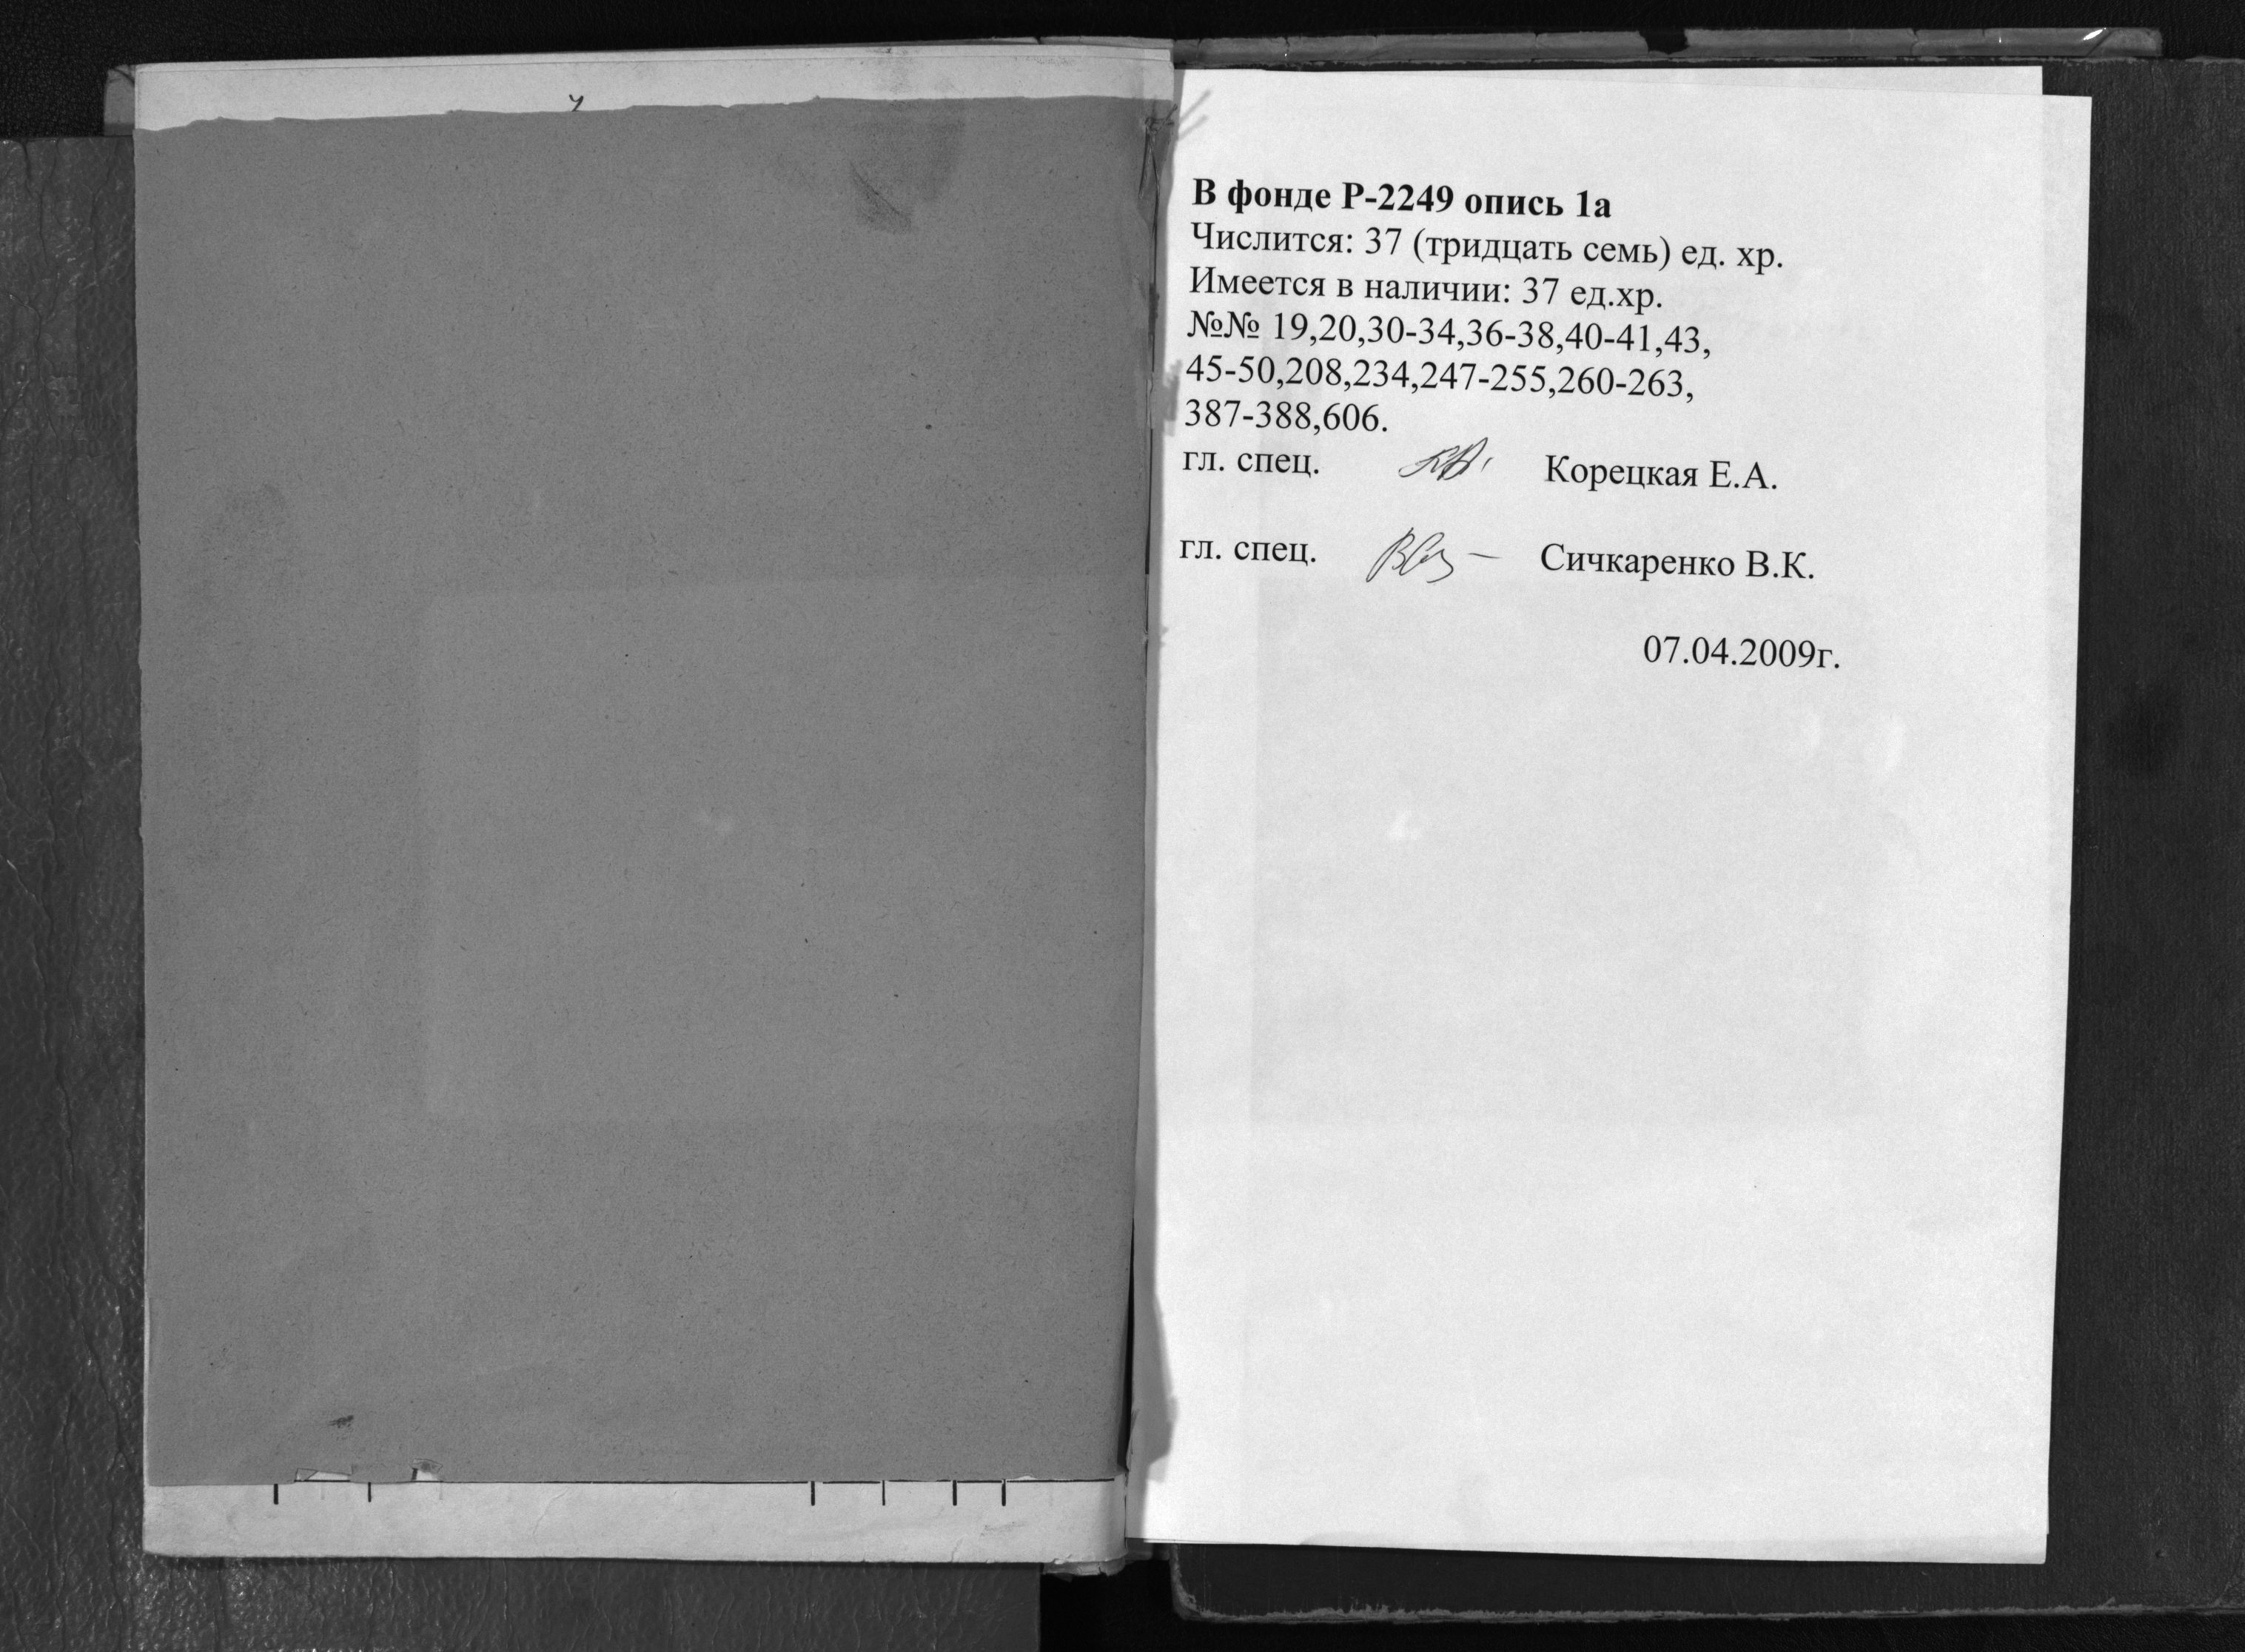 В фонде Р-2249 опись 1а
Числится: 37 (тридцать семь) ед. хр.
Имеется в наличии: 37 ед.хр.
№№ 19,20,30-34,36-38,40-41,43,
45-50,208,234,247-255,260-263,
387-388,606.
гл. спец. Корецкая Е.А.
гл. спец. Сичкаренко В.К.
07.04.2009г.